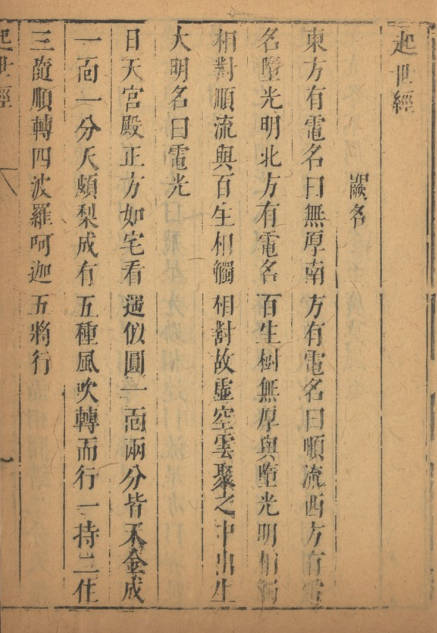 起世經
闕名
東方有電名曰無厚南方有電名曰順流西方有電
名墮光明北方有電名百生樹無厚與墮光明相觸
相對順流與百生相觸相對故虛空雲聚之中出生
大明名曰電光
日天宮殿正方如宅看遥似圓一面兩分皆天金成
一面一分天頗梨成有五種風吹轉而行一持二住
三隨順轉四波羅呵迦五將行
起世經